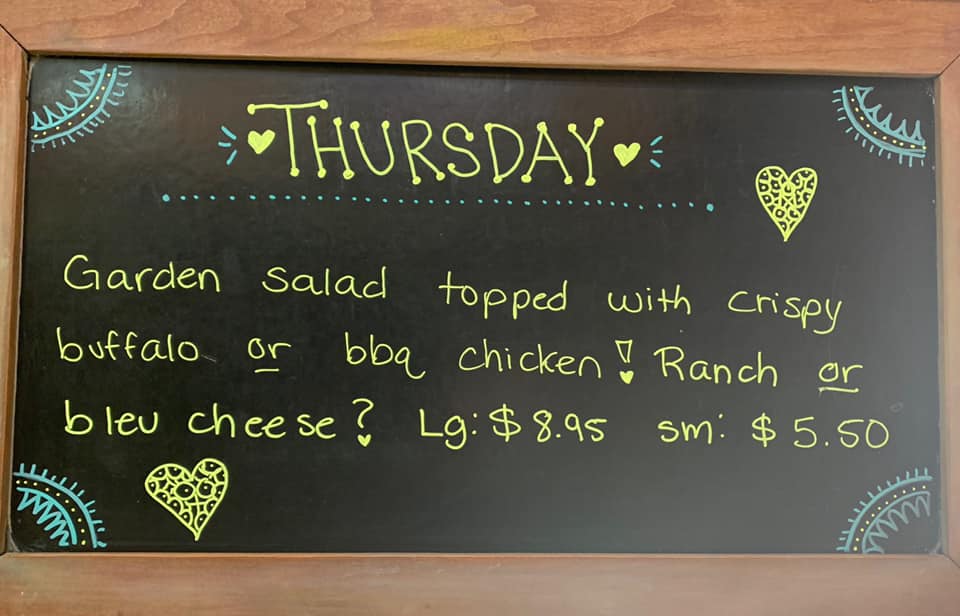 THURSDAY
Garden salad topped with crispy
buffalo or bbq chicken! Ranch or
bleu cheese? Lg: $8.95 sm: $5.50